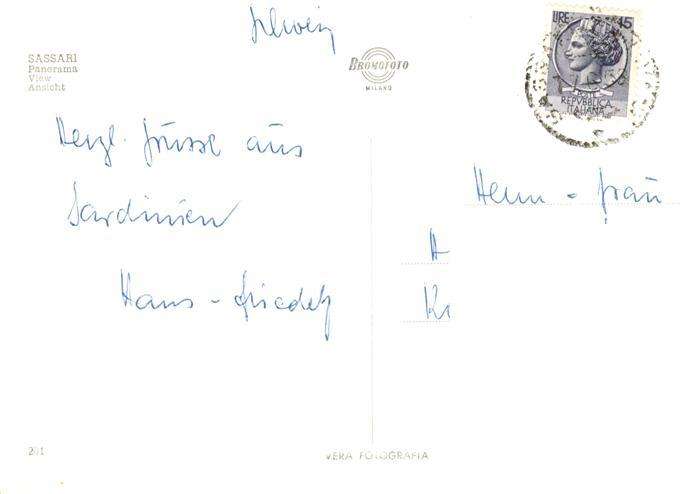 Schweiz
SASSARI
Panorama
View
Ansicht
BROMOFOTO
MILANO
LIRE 15
POSTE
REPVBBLICA
ITALIANA
Herzl. Grüsse aus
Sardinien
Hans - Friedel
Herrn - Frau
H
Kr
201
VERA FOTOGRAFIA